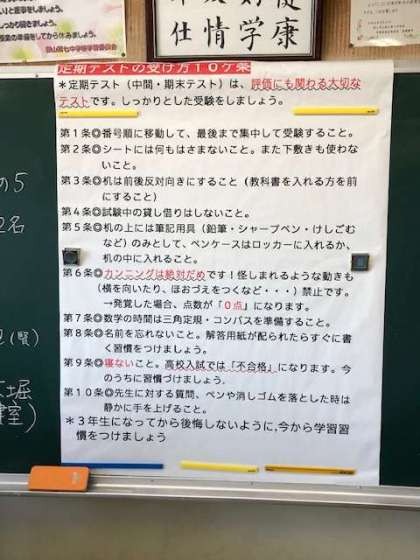 しい」と言事をしましょう。
授業の準備をしてから休みましょう。
仕情学康
定期テストの受け方10ケ条
*定期テスト（中間・期末テスト）は、評価にも関わる大切な
テストです。しっかりとした受験をしましょう。
第1条◎番号順に移動して、最後まで集中して受験すること。
第2条◎シートには何もはさまないこと。また下敷きも使わな
いこと。
第3条◎机は前後反対向きにすること（教科書を入れる方を前
にすること）
第4条◎試験中の貸し借りはしないこと。
第5条◎机の上には筆記用具（鉛筆・シャープペン・けしごむ
など）のみとして、ペンケースはロッカーに入れるか、
机の中に入れること。
第6条◎カンニングは絶対だめです！怪しまれるような動きも
（横を向いたり、ほおづえをつくなど・・・）禁止です。
→発覚した場合、点数が「0点」になります。
第7条◎数学の時間は三角定規・コンパスを準備すること。
第8条◎名前を忘れないこと。解答用紙が配られたらすぐに書
く習慣をつけましょう。
第9条◎寝ないこと。高校入試では「不合格」になります。今
のうちに習慣づけましょう。
第10条◎先生に対する質問、ペンや消しゴムを落とした時は
静かに手を上げること。
*3年生になってから後悔しないように、今から学習習
慣をつけましょう
の5
2名
(賢)
堀
室)